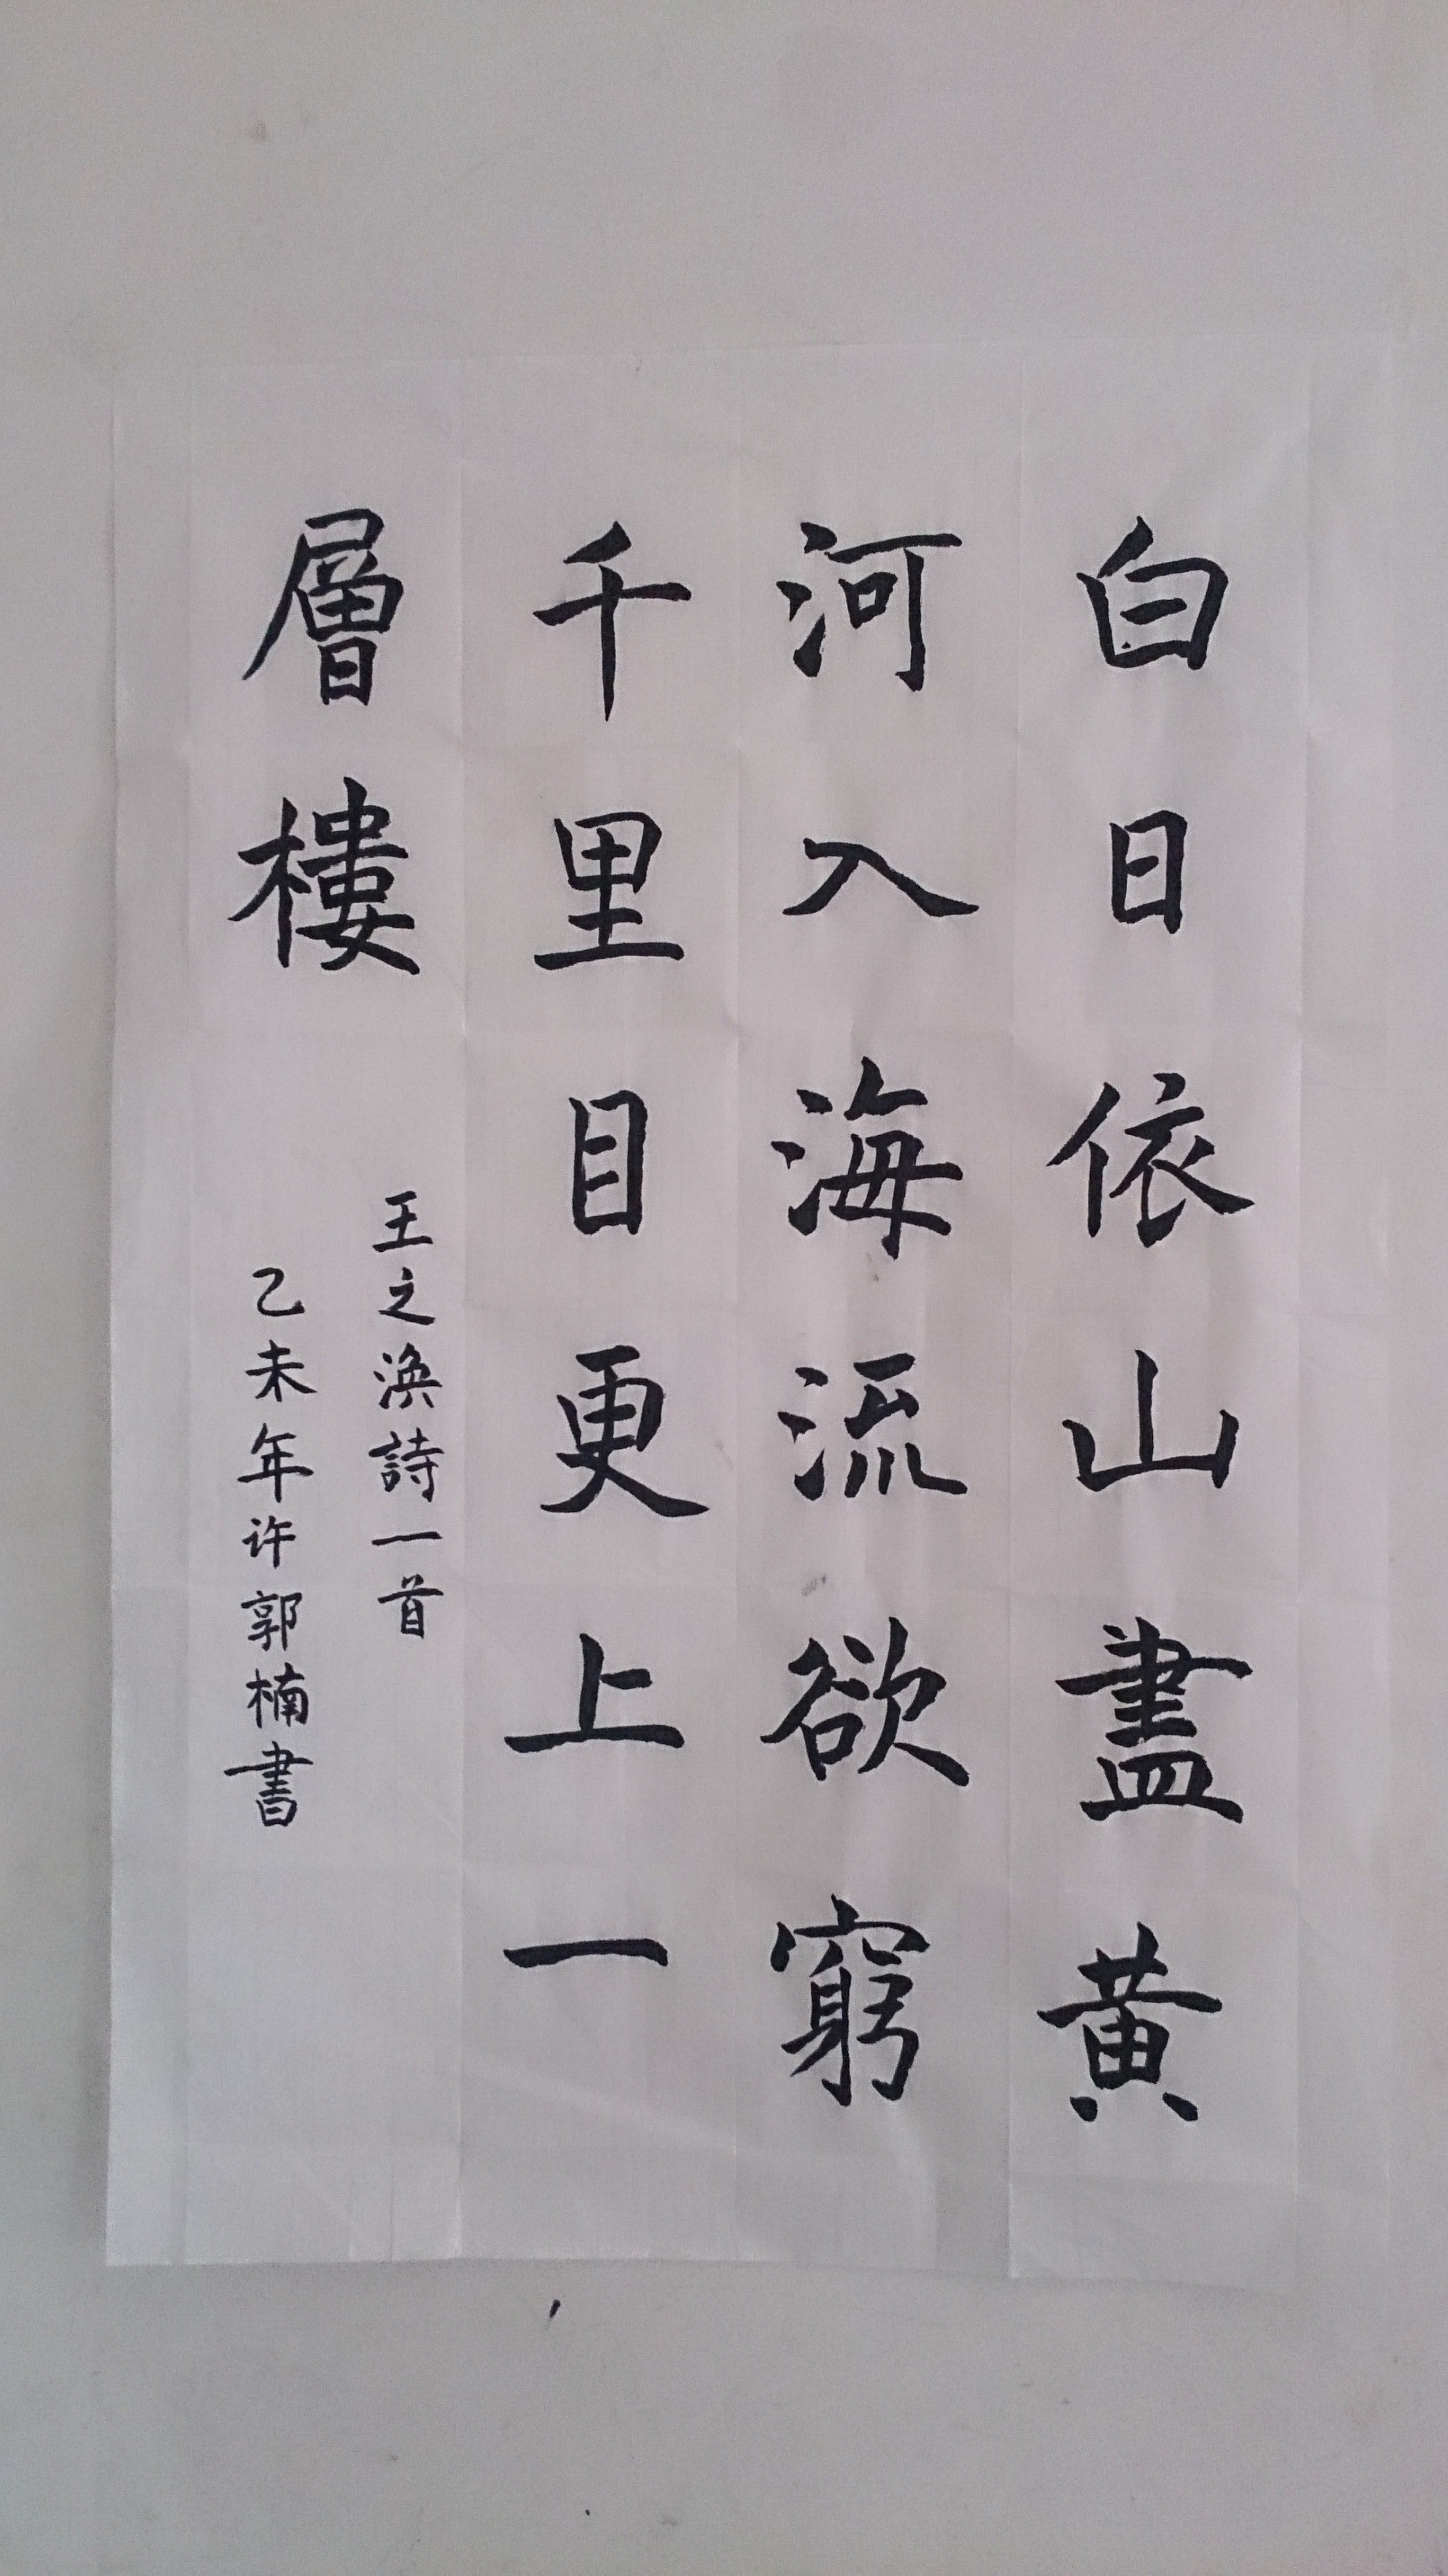 白日依山盡黄
河入海流欲窮
千里目更上一
層樓
王之渙詩一首
乙未年许郭楠書